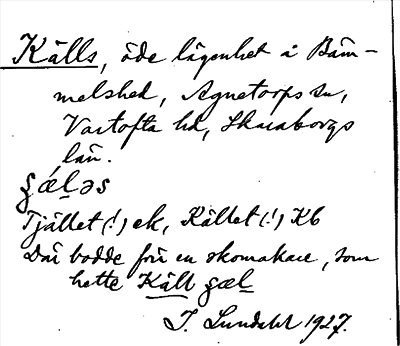 Källs, öde lägenhet å Bäm-
melshed, Agnetorps sn,
Vartofta hd, Skaraborgs
län.
ʂæ̀ḷəs
Tjället(!) ek, Kället(!) Kb
Där bodde förr en skomakare, som
hette Käll ʂæl
J. Lundahl 1927.